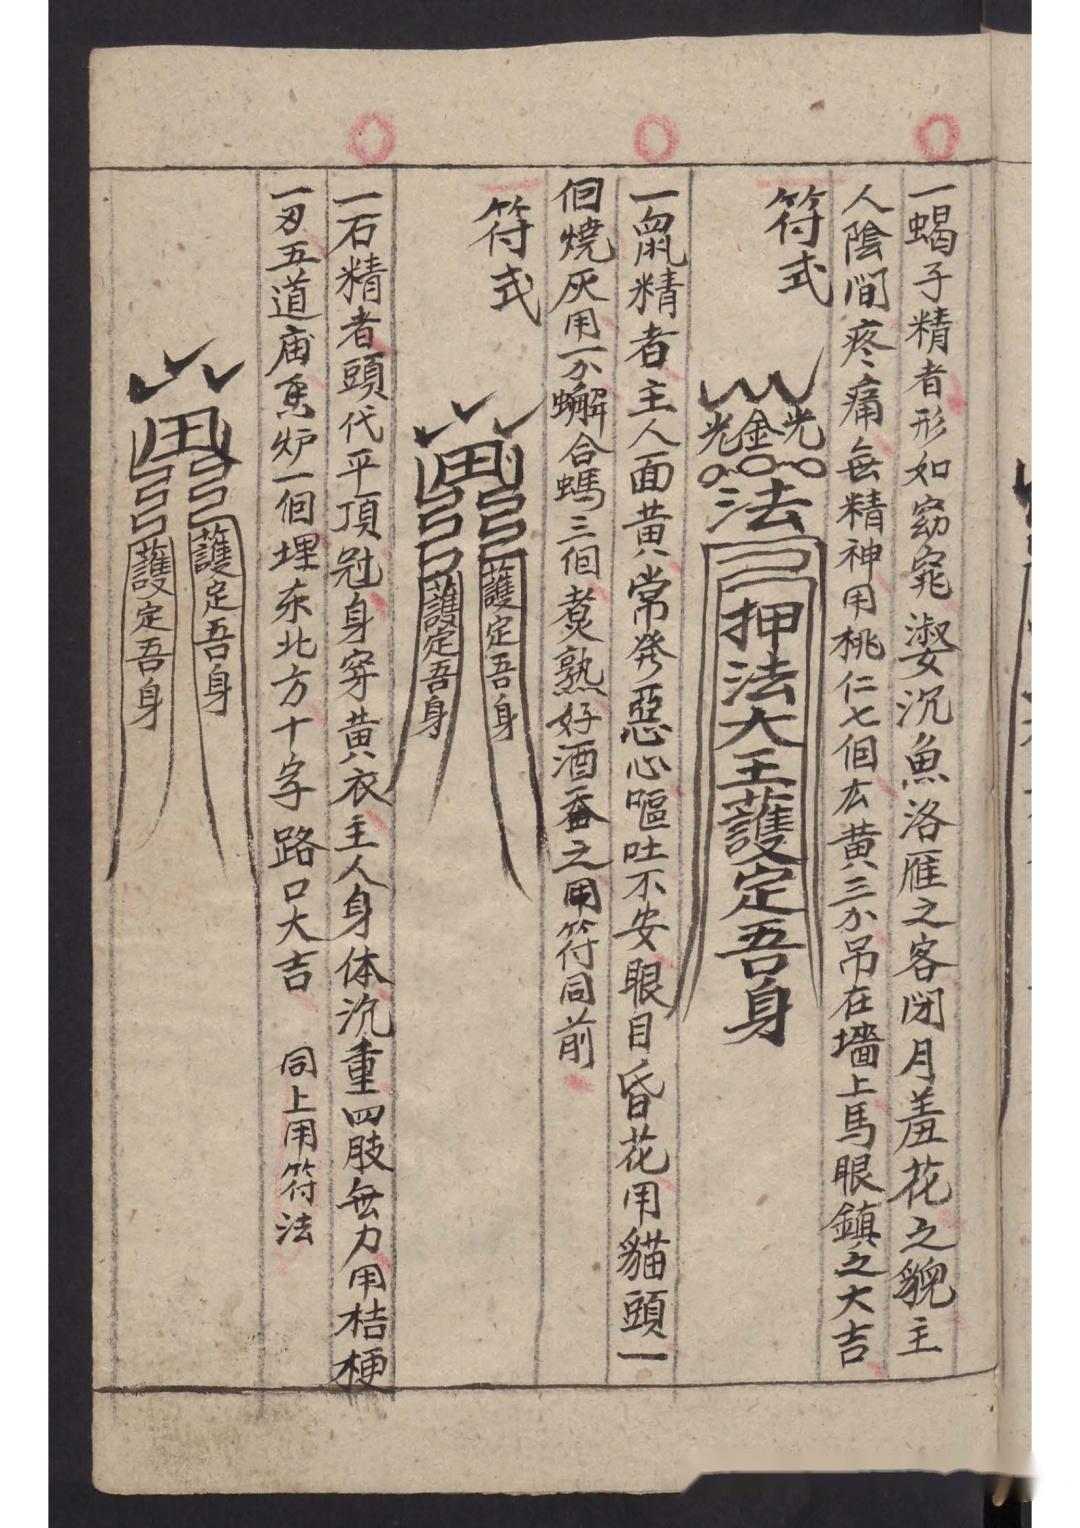 一蝎子精者形如窈窕淑女沉魚洛雁之客閉月羞花之貌主
人陰間疼痛無精神用桃仁七個玄黄三分吊在墻上馬眼鎮之大吉
符式
光金光
法
押法大王護定吾身
一鼠精者主人面黄常発惡心嘔吐不安眼目昏花用貓頭一
佪燒灰用一分蠏合螞三佪煮熟好酒吞之用符同前
符式
護定吾身
護定吾身
一石精者頭代平頂冠身穿黄衣主人身体沉重四肢無力用桔梗
一刄五道庙香炉一佪埋东北方十字路口大吉 同上用符法
護定吾身
護定吾身